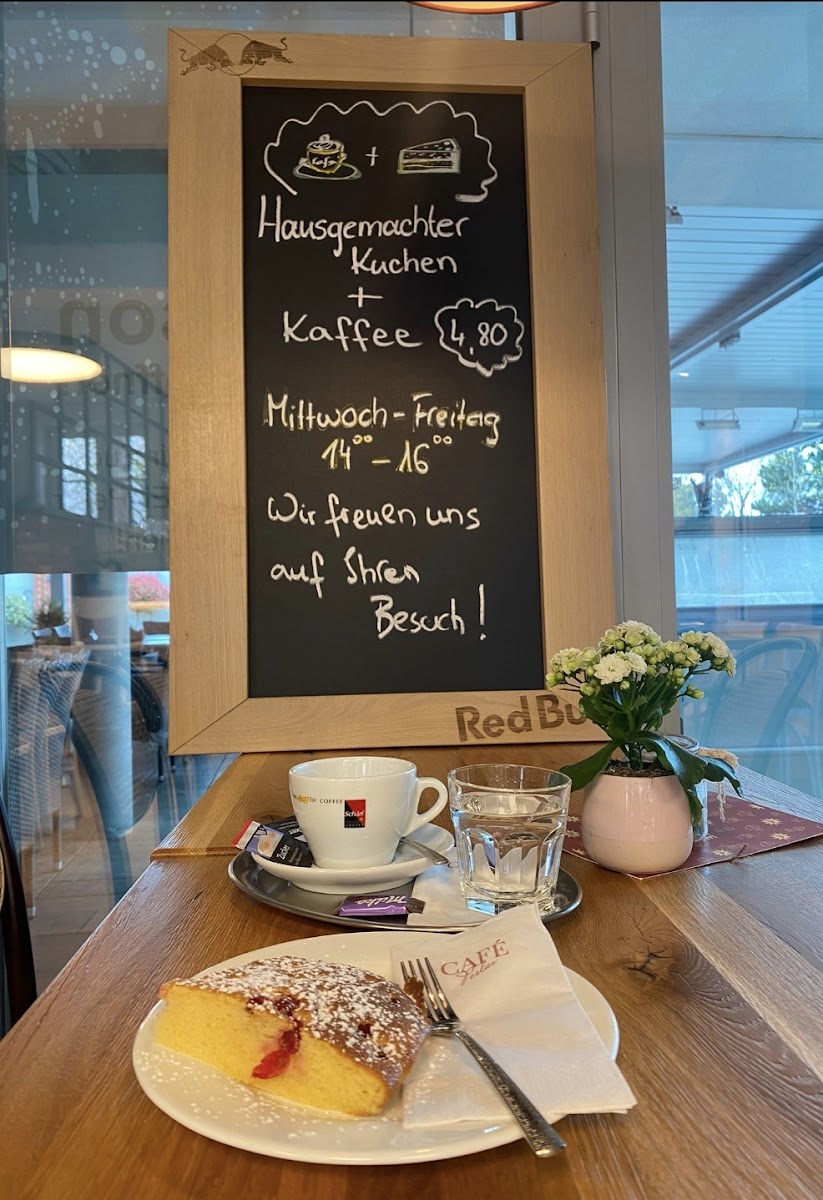 Cafe
+
Hausgemachter
Kuchen
+
Kaffee 4,80
Mittwoch - Freitag
14⁰⁰ - 16⁰⁰
Wir freuen uns
auf Ihren
Besuch!
Red Bu
OF COFFEE
Schärf
Zucker
Milka
CAFÉ
son